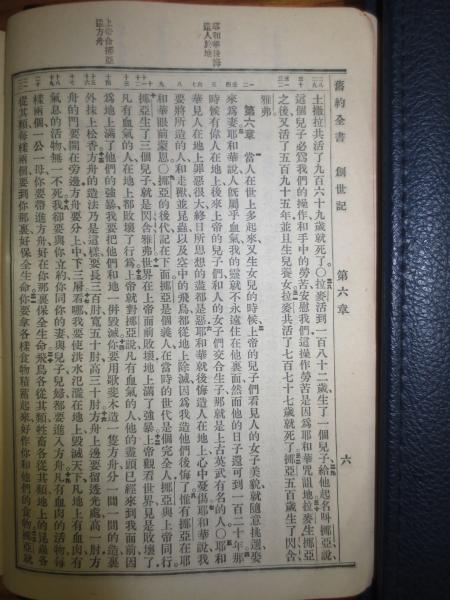 舊約全書 創世記 第六章 六
耶和華後悔
造人於地
上帝命挪亞
造方舟
土撒拉共活了九百六十九歲就死了○拉麥活到一百八十二歲生了一個兒子給他起名叫挪亞說
這個兒子必爲我們的操作和手中的勞苦安慰我們這操作勞苦是因爲耶和華咒詛地拉麥生挪亞
之後又活了五百九十五年並且生兒養女拉麥共活了七百七十七歲就死了挪亞五百歲生了閃含
雅弗
第六章 當人在世上多起來又生女兒的時候上帝的兒子們看見人的女子美貌就隨意挑選娶
來爲妻耶和華說人旣屬乎血氣我的靈就不永遠住在他裏面然而他的日子還可到一百二十年那
時候有偉人在地上後來上帝的兒子們和人的女子們交合生子那就是上古英武有名的人○耶和
華見人在地上罪惡很大終日所思想的盡都是惡耶和華就後悔造人在地上心中憂傷耶和華說我
要將所造的人和走獸並昆蟲以及空中的飛鳥都從地上除滅因爲我造他們後悔了惟有挪亞在耶
和華眼前蒙恩○挪亞的後代記在下面挪亞是個義人在當時的世代是個完全人挪亞與上帝同行
挪亞生了三個兒子就是閃含雅弗世界在上帝面前敗壞地上滿了強暴上帝觀看世界見是敗壞了
凡有血氣的人在地上都敗壞了行爲上帝就對挪亞說凡有血氣的人他的盡頭已經來到我面前因
爲地上滿了他們的強暴我要把他們和地一併毀滅你要用歌斐木造一隻方舟分一間一間的造裏
外抹上松香方舟的造法乃是這樣要長三百肘寬五十肘高三十肘方舟上邊要留透光處高一肘方
舟的門要開在旁邊方舟要分上中下三層看哪我要使洪水氾濫在地上毀滅天下凡地上有血肉有
氣息的活物無一不死我卻要與你立約你同你的妻與兒子兒婦都要進入方舟凡有血肉的活物每
樣兩個一公一母你要帶進方舟好在你那裏保全生命飛鳥各從其類牲畜各從其類地上的昆蟲各
從其類每樣兩個要到你那裏好保全生命你要拿各樣食物積蓄起來好作你和他們的食物挪亞就